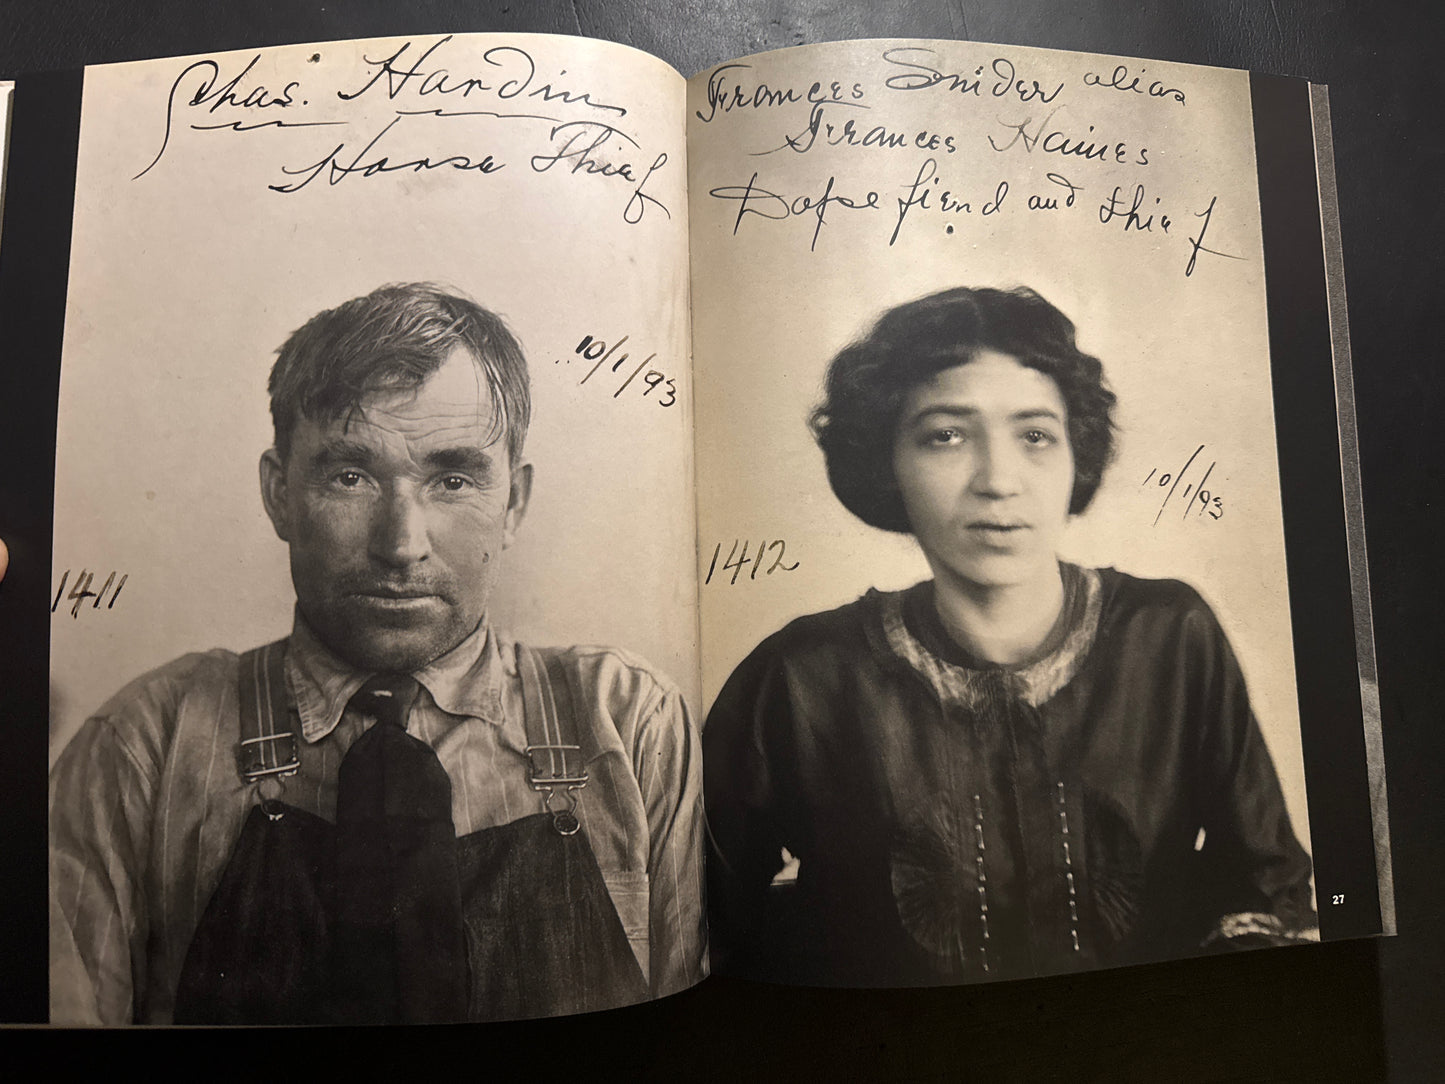 Chas. Hardin
Horse Thief
10/1/93
1411
Frances Snider alias
Frances Haines
Dope fiend and thief
10/1/93
1412
27